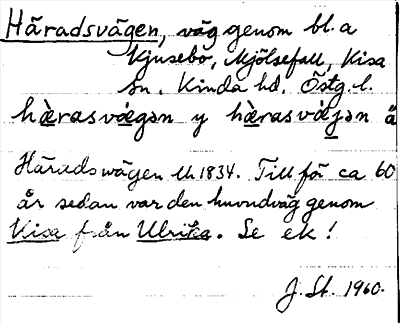 Häradsvägen, väg genom bl.a
Kjusebo, Mjölsefall, Kisa
sn. Kinda hd. Östg.l.
hä̀rasvǽgən y hä̀rasvǽjən ä
Häradswägen Uk 1834. Till för ca 60
år sedan var den huvudväg genom
Kisa från Ulrika. Se ek!
J. St. 1960.